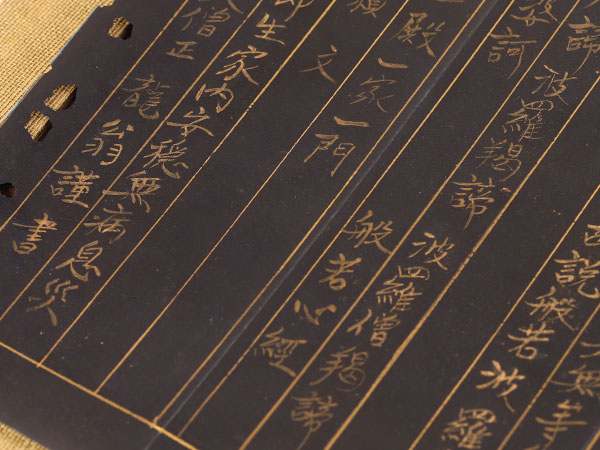 無等
説般若波羅
諦 波羅羯諦 波羅僧羯諦
婆訶 般若心經
殿一家一門
文
生家内安穏無病息災
僧正 龍翁謹書